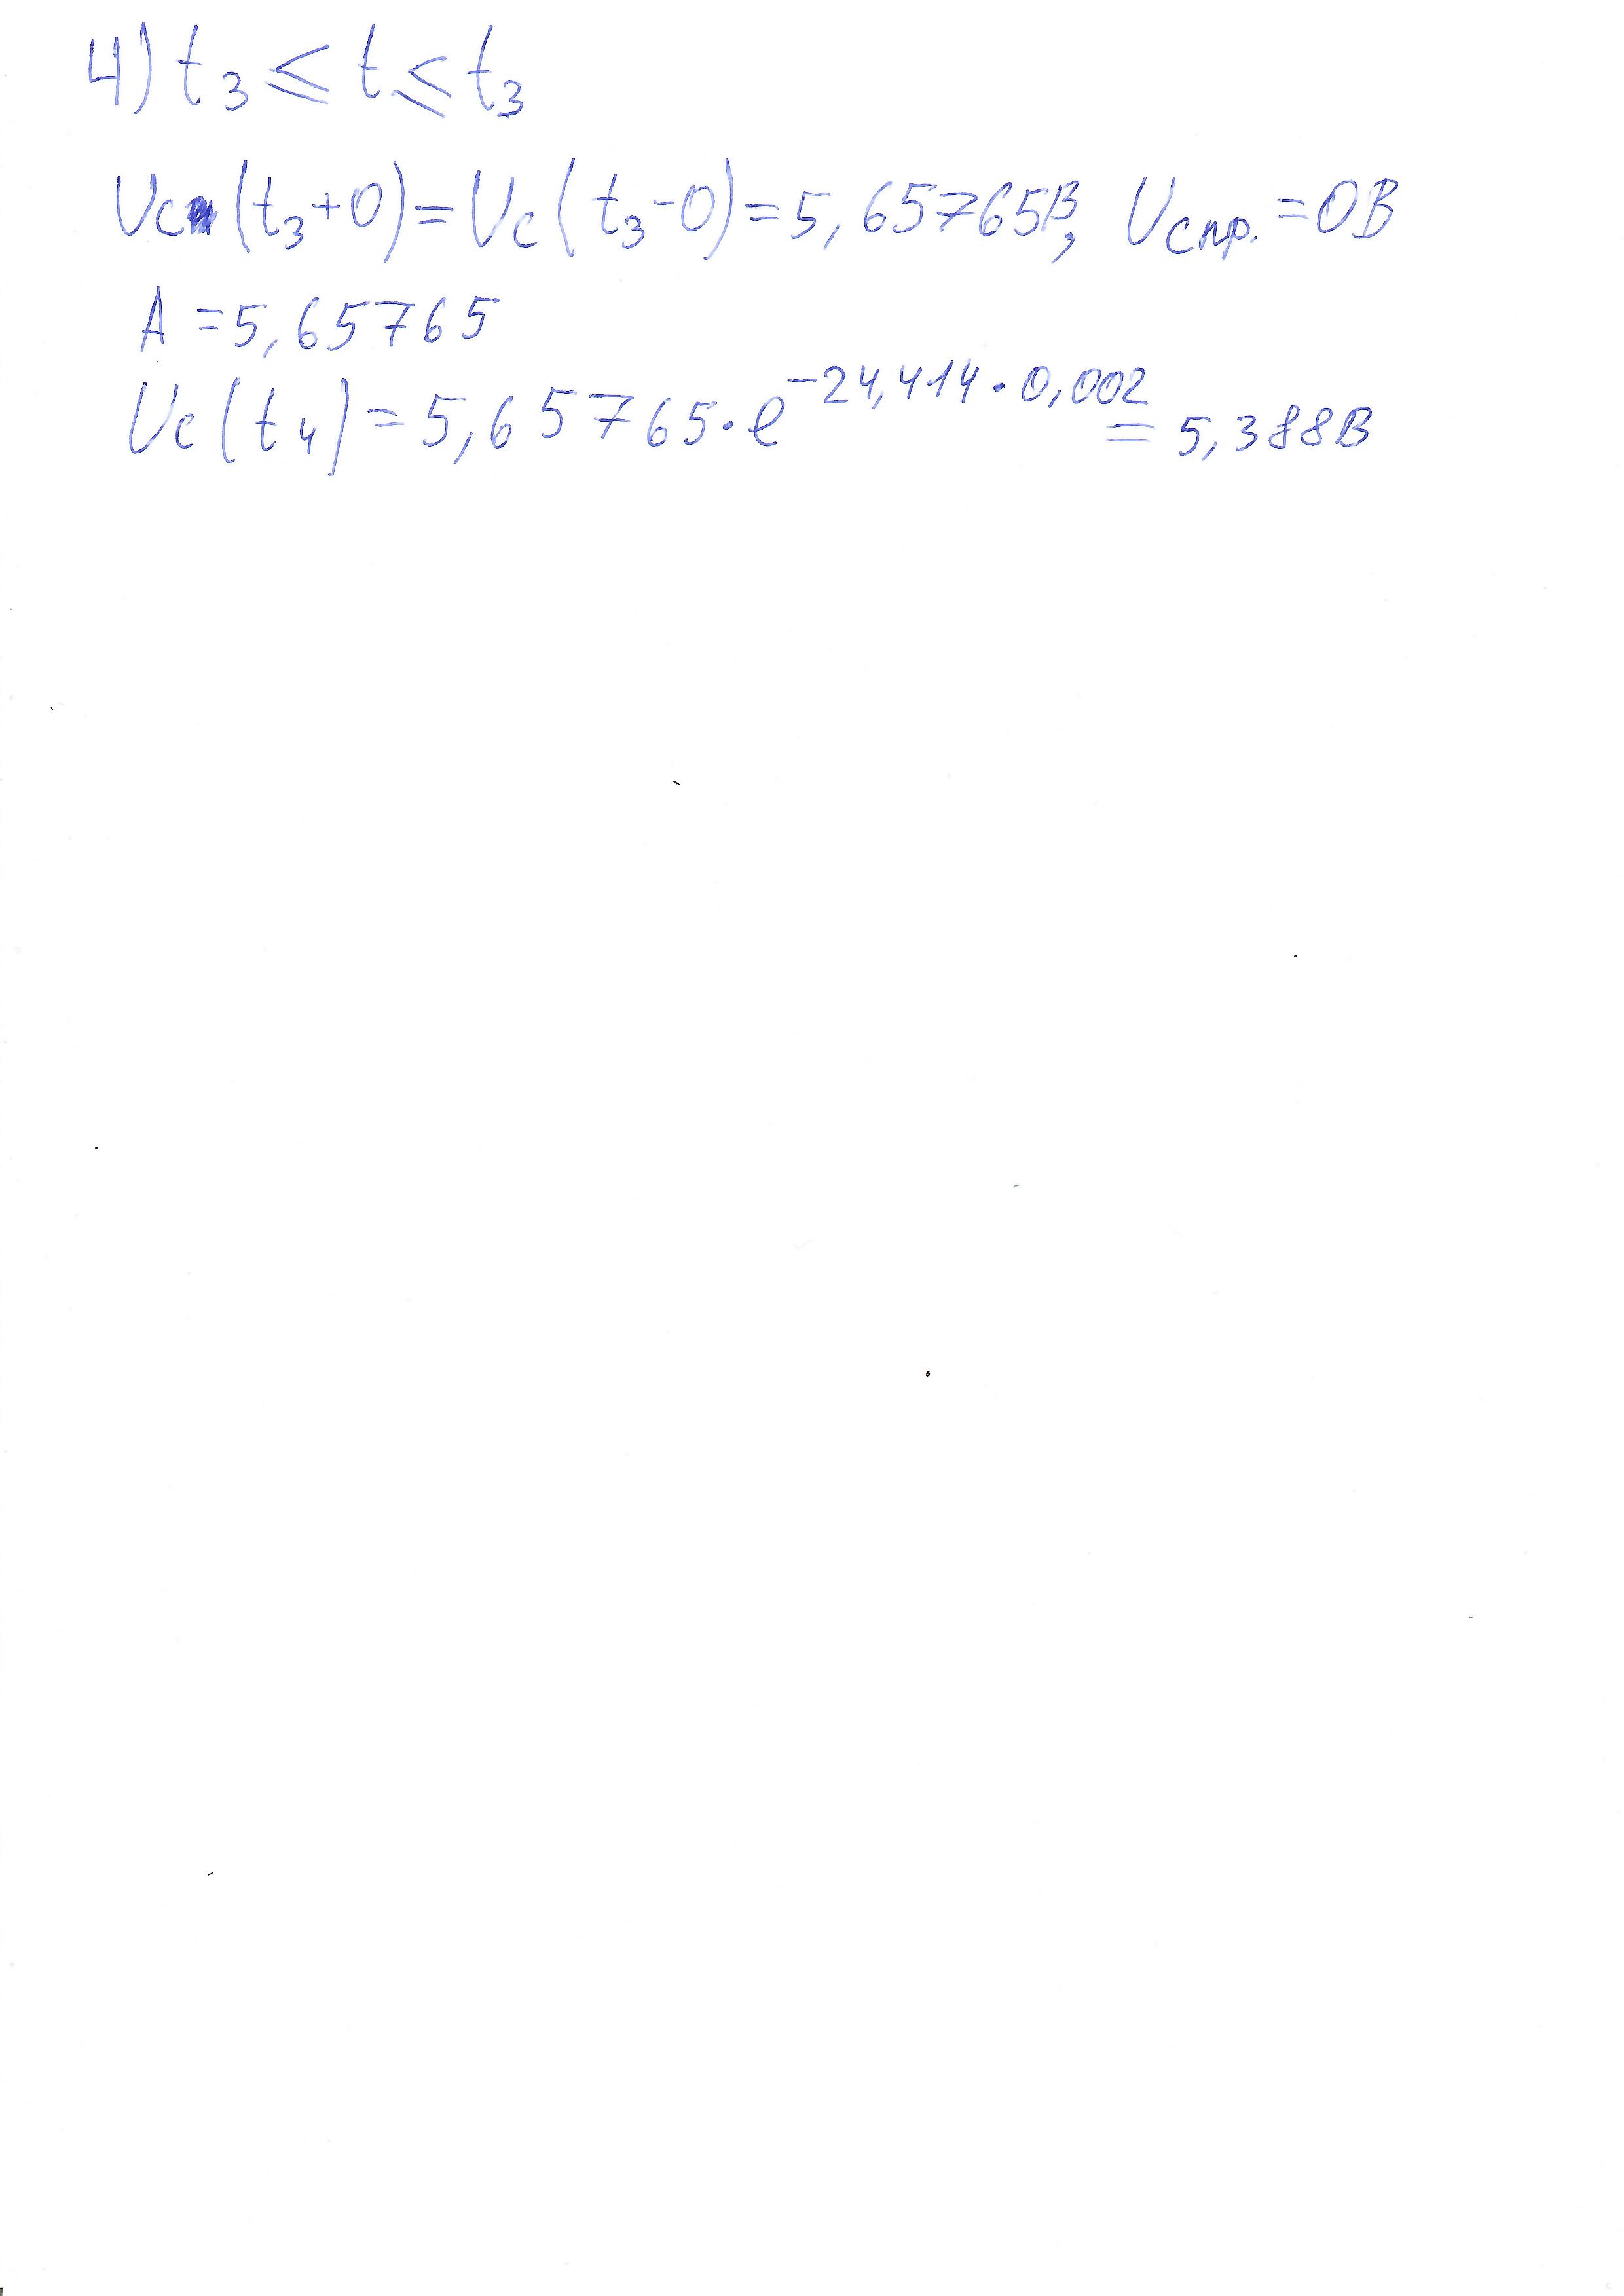 4) t₃ ≤ t ≤ t₃
Uc (t₃+0) = Uc (t₃-0) = 5,65765В, Uс пр. = 0В
A = 5,65765
Uc (t₄) = 5,65765 · e^(-24,414 · 0,002) = 5,388В